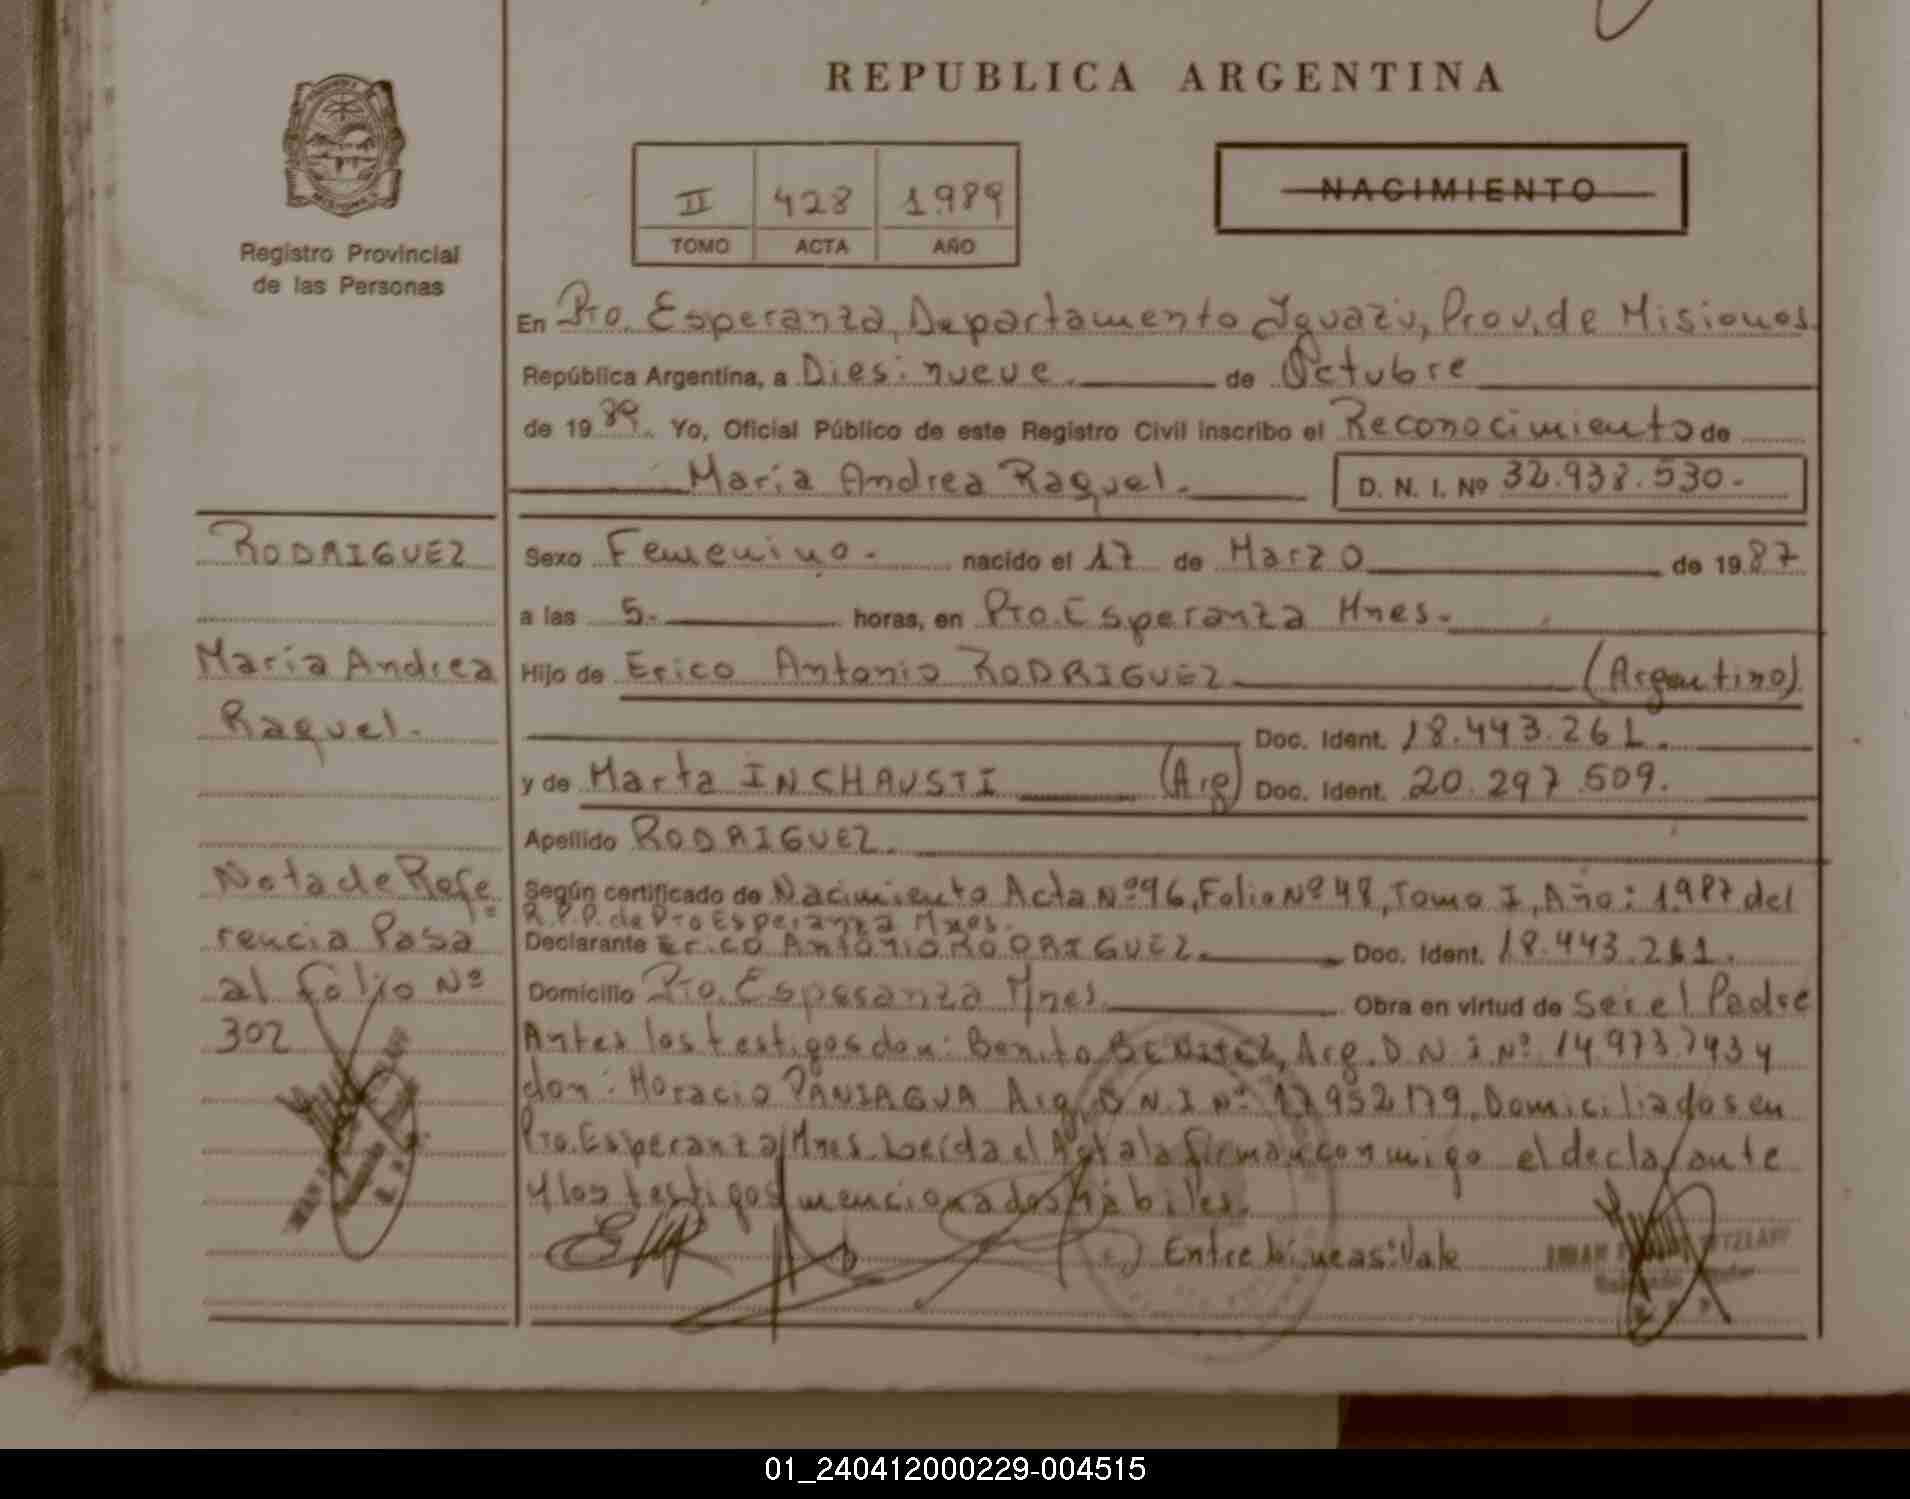 REPUBLICA ARGENTINA
II 428 1989
TOMO ACTA AÑO
NACIMIENTO
Registro Provincial
de las Personas
En Pto. Esperanza, Departamento Iguazú, Prov. de Misiones
República Argentina, a Diesinueve de Octubre
de 1989. Yo, Oficial Público de este Registro Civil inscribo el Reconocimiento de
María Andrea Raquel. D. N. I. Nº 32.938.530.-
RODRIGUEZ
María Andrea
Raquel.
Nota de Refe=
rencia Pasa
al folio Nº
302
Sexo Femenino. nacido el 17 de Marzo de 1987
a las 5. horas, en Pto. Esperanza Mnes.
Hijo de Erico Antonio RODRIGUEZ (Argentino)
Doc. Ident. 18.443.261.
y de Marta INCHAUSTI (Arg) Doc. Ident. 20.297.509.
Apellido RODRIGUEZ.
Según certificado de Nacimiento Acta Nº 96, Folio Nº 48, Tomo I, Año: 1987 del
R.P.P. de Pto Esperanza Mnes.
Declarante Erico Antonio RODRIGUEZ. Doc. Ident. 18.443.261.
Domicilio Pto. Esperanza Mnes. Obra en virtud de Ser el Padre
Antes los testigos don: Benito BENITEZ, Arg. D N I Nº 14.973.793 y
don: Horacio PANIAGUA Arg. D N. I Nº 17952179, Domiciliados en
Pto. Esperanza Mnes. Leída el Acta la firman conmigo el declarante
y los testigos mencionados hábiles.
Entre Líneas: Vale
01_240412000229-004515